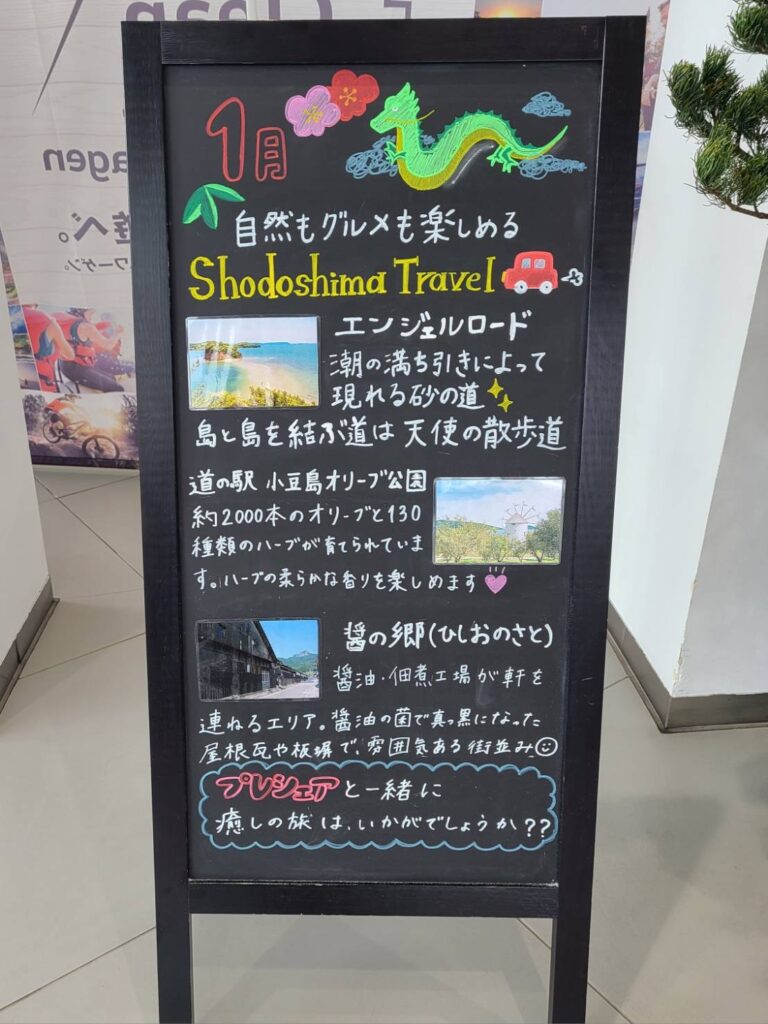 1月
自然もグルメも楽しめる
Shodoshima Travel
エンジェルロード
潮の満ち引きによって
現れる砂の道
島と島を結ぶ道は 天使の散歩道
道の駅 小豆島オリーブ公園
約2000本のオリーブと130
種類のハーブが育てられていま
す。ハーブの柔らかな香りを楽しめます
醤の郷(ひしおのさと)
醤油・佃煮工場が軒を
連ねるエリア。醤油の菌で真っ黒になった
屋根瓦や板塀で、雰囲気ある街並み
プレシェアと一緒に
癒しの旅は、いかがでしょうか??
agen
べ。
ワーゲン。